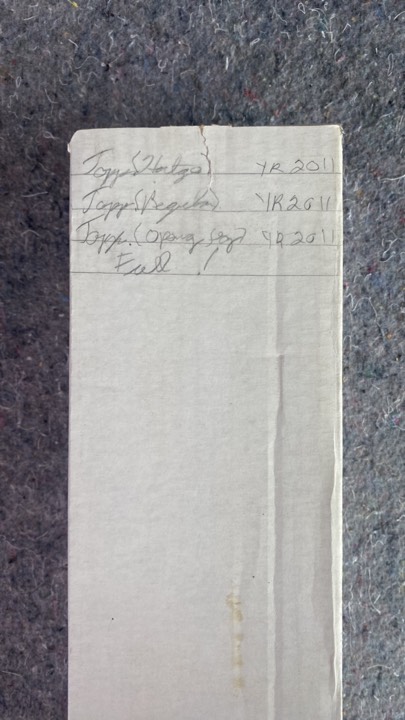 Topps (Heritage) YR 2011
Topps (Regular) YR 2011
Topps. (Opening Day) YR 2011
Full !